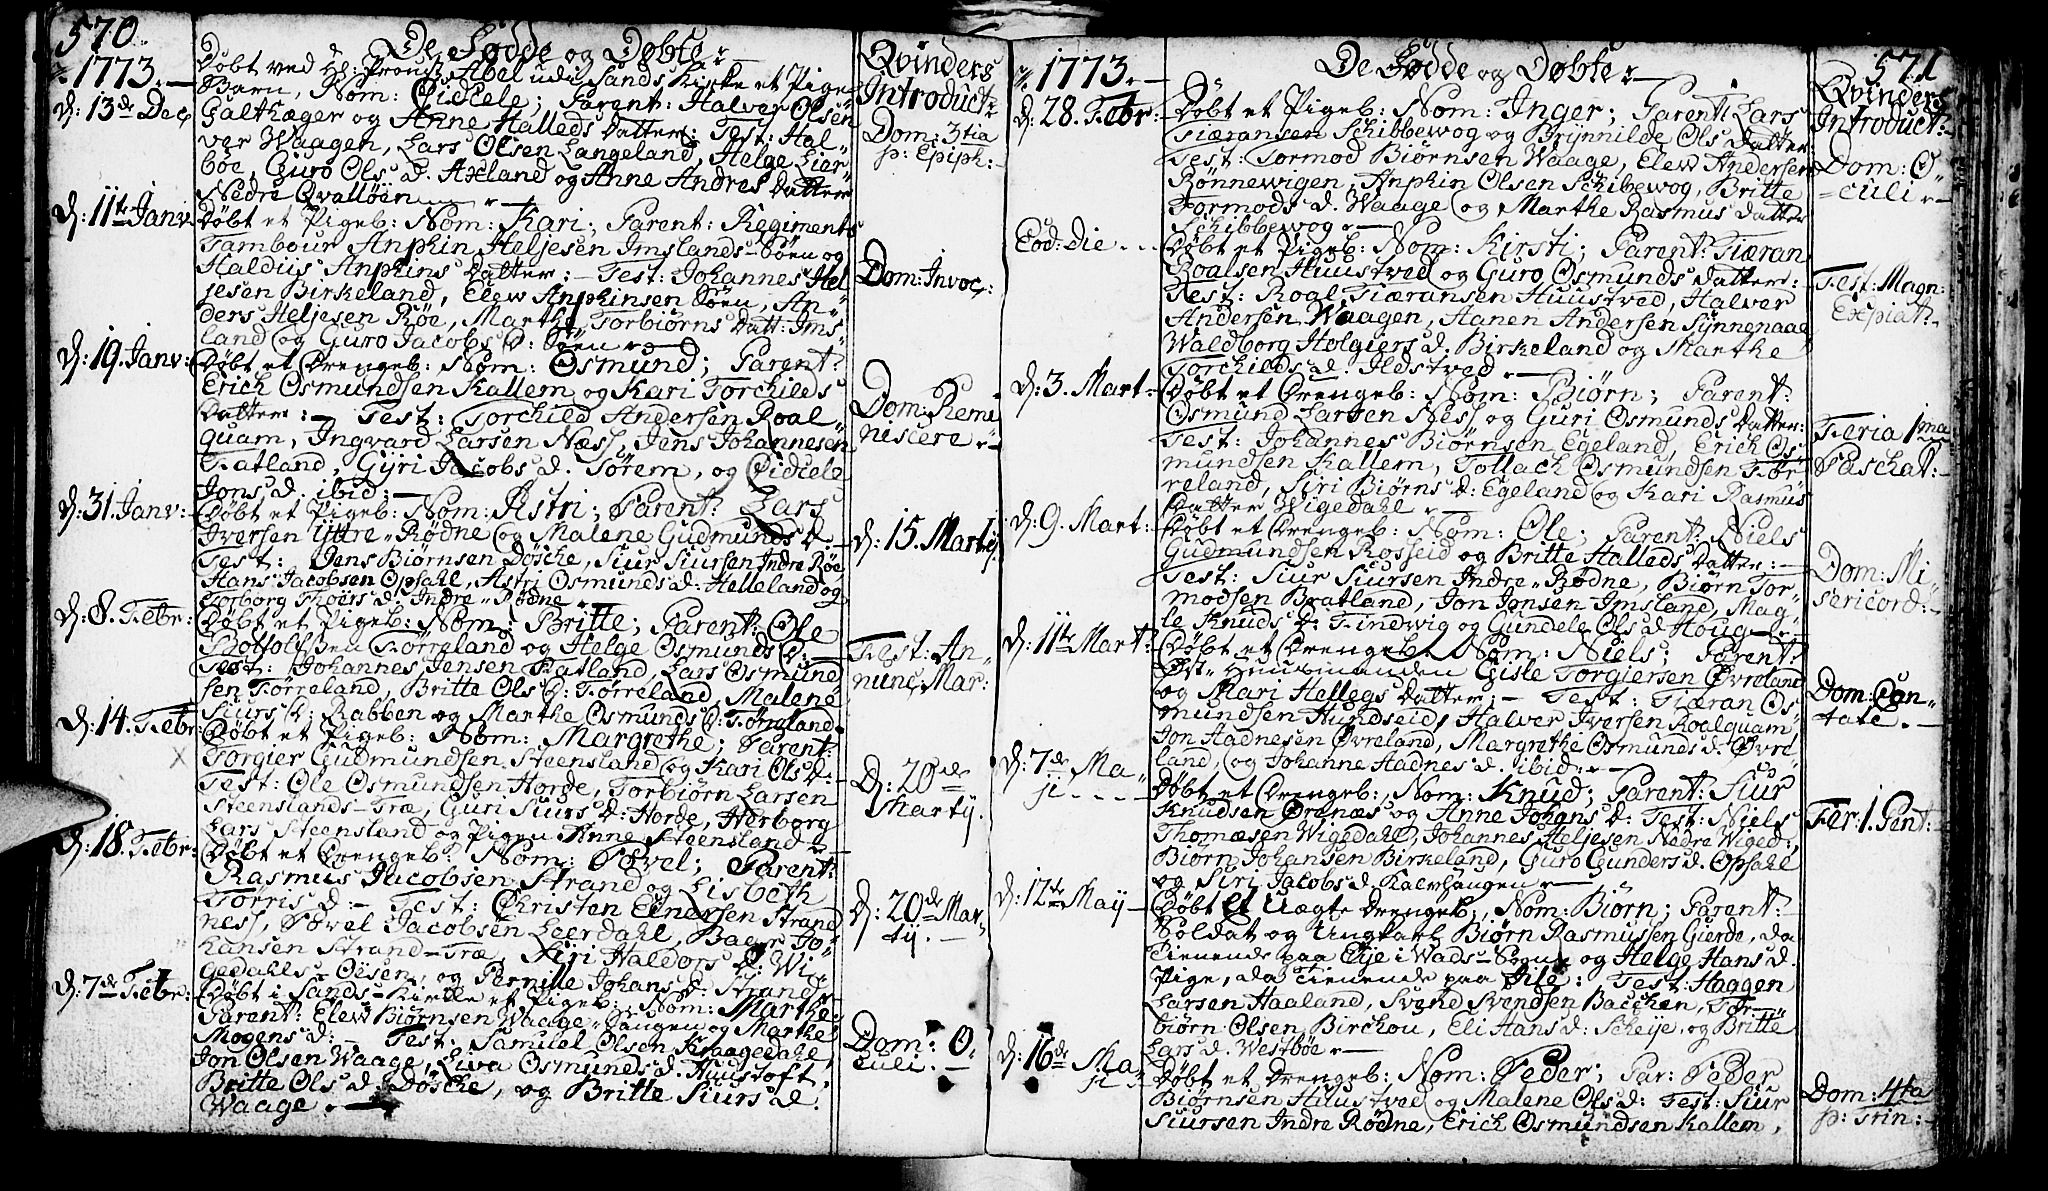 570.
De Fødde og Døbte
Qvinders
Introduct:
1773.
d: 13de Dec
Døbt ved Hr: Proust Abel udi Sands Kirke et Pige
Barn, Nom: Cidcele; Parent: Halver Olsen
Galthæger og Anne Halleds Datter: Test: Hal-
vor Waagen, Lars Olsen Langeland, Helge Lier-
böe, Guro Ols d. Axland og Anne Andres Datter
Nedre Qvalløen
Dom: 3tia
p: Epiph:
d: 11te Janv
Døbt et Pigeb: Nom: Kari; Parent: Regiments
Tambour Anphin Heljesen Imslands-Søen og
Haldiis Anphins Datter: Test: Johannes Hel
jesen Birkeland, Elew Anphinsen Søen, An-
ders Heljesen Røe, Marthe Torbiørns Datt: Ims-
land og Guro Jacobs D: Søen
Dom: Invoc:
d: 19. Janv:
Døbt et Drengeb: Nom: Osmund; Parent:
Erich Osmundsen Kallem og Kari Torchilds
Datter: Test: Torchild Andersen Roal-
quam, Ingvard Larsen Næss, Jens Johannesen
Fatland, Gyri Jacobs d. Sørem, og Cidcele
Jons d. ibid:
Dom: Remi
niscere
d: 31 Janv:
Døbt et Pigeb: Nom: Astri; Parent: Lars
Iversen Yttre Rødne og Malene Gudmunds D:
Test: Jens Biørnsen Døscke, Siur Siursen Indre Røe
Hans Jacobsen Opsahl, Astri Osmunds d. Helleland og
Torborg Thoers d. Indre Rødne
d: 15. Martij
d: 8. Febr:
Døbt et Pigeb: Nom: Britte; Parent: Ole
Botholfsen Førreland og Helge Osmunds D:
Test: Johannes Jensen Fatland, Lars Osmund
sen Førreland, Britte Ols D: Førreland Malene
Siurs D: Rabben og Marthe Osmunds D: Tøngland
Fest: An-
nunc: Mar:
d: 14. Febr:
Døbt et Pigeb: Nom: Margrethe; Parent:
Torgier Gudmundsen Steensland og Kari Ols D:
Test: Ole Osmundsen Horde, Torbiørn Larsen
Steenslands-Træ, Guri Siurs D: Horde, Herborg
Lars Steensland og Pigen Anne Steensland
d: 20de
Martij.
d: 18. Febr:
Døbt et Drengeb: Nom: Povel; Parent:
Rasmus Jacobsen Strand og Lisbeth
Tørris d: Test: Christen Einersen Strand
ness, Povel Jacobsen Leerdahl, Baer Jo-
hansen Strand-Træ, Siri Haldors d: Wi-
gedahls-Oesen, og Pernille Johans d: Strand
d: 20de Mar-
tij.
d: 7de Febr:
Døbt i Sands-Kirke et Pigeb: Nom: Marthe
Parent: Elew Biørnsen Waage-Vangen og Marthe
Mogens d: Test: Samuel Olsen Kraagedahl,
Jon Olsen Waage, Liva Osmunds d. Huustoft,
Britte Ols d: Døscke, og Britte Siurs d.
Waage.
Dom: O-
culi.
571
De Fødde og Døbte
Qvinders
Introduct:
1773.
d: 28. Febr:
Døbt et Pigeb: Nom: Inger; Parent: Lars
Tiæransen Schibbewog og Brynnilde Ols Datter:
Test: Tormod Biørnsen Waage, Elew Andersen
Rønnewigen, Anphin Olsen Schibewog, Britte
Tormods d. Waage og Marthe Rasmus Datter
Schibbewog
Dom: O-
culi
Eod: Die
Døbt et Pigeb: Nom: Kirsti; Parent: Tiæran
Roalsen Huustved og Guro Osmunds Datter:
Test: Roal Tiæransen Huustved, Halver
Andersen Waagen, Aanen Andersen Synnenaae
Waldborg Holgiers d. Birkeland og Marthe
Torchilds d. Ilestved
Fest: Magn:
Expiat:
d: 3. Mart:
Døbt et Drengeb: Nom: Biørn; Parent:
Osmund Larsen Ness og Guri Osmunds Datter:
Test: Johannes Biørnsen Egeland, Erich Os-
mundsen Kallem, Tollach Osmundsen Før-
reland, Siri Biørns d: Egeland og Kari Rasmus
Datter Wigedahl
Feria 1ma
Paschat:
d: 9. Mart:
Døbt et Drengeb: Nom: Ole; Parent: Niels
Gudmundsen Rosseid og Britte Halleds Datter:
Test: Siur Siursen Indre-Rødne, Biørn Tor-
modsen Bratland, Jon Jonsen Imsland, Mag-
le Knuds D: Findwig og Gundele Ols d Houg
Dom: Mi-
sericord:
d: 11te Mart:
Døbt et Drengeb: Nom: Niels; Parent:
Øst-Huusmanden Gisle Torgiersen Øvreland
og Mari Hellegs Datter; Test: Tiæran Os-
mundsen Hundseid, Halver Iversen Roalquam,
Jon Hadnesen Øvreland, Margrethe Osmunds d. Øvre
land, og Johanne Hadnes d. ibid:
Dom: Can-
tate.
d: 7de Ma-
ji
Døbt et Drengeb: Nom: Knud; Parent: Siur
Knudsen Ørenæs og Anne Johans d: Test: Niels
Thomæsen Wigedahl, Johannes Heljesen Nedre Wiged:,
Biørn Johansen Birkeland, Guro Gunders d. Opsahl
og Siri Jacobs d. Kalvhangen
Fer: 1. Pent:
d: 12te Maij
Døbt et Uægte Drengeb; Nom: Biørn; Parent:
Soldat og Ungkarl Biørn Rasmussen Gierde, da
Tienende paa Eije i Wads-Sogn og Helge Hans d.
Pige, da Tienende paa Ile: Test: Haagen
Larsen Haaland, Svend Svendsen Bacchen, Tor-
biørn Olsen Birchou, Eli Hans d: Scheije, og Britte
Lars d. Westbøe
d: 16de Ma-
ji
Døbt et Drengeb: Nom: Peder; Par: Peder
Biørnsen Huustved og Malene Ols d: Test: Siur
Siursen Indre Rødne, Erich Osmundsen Kallem,
Dom: 4ta
p: Trin: